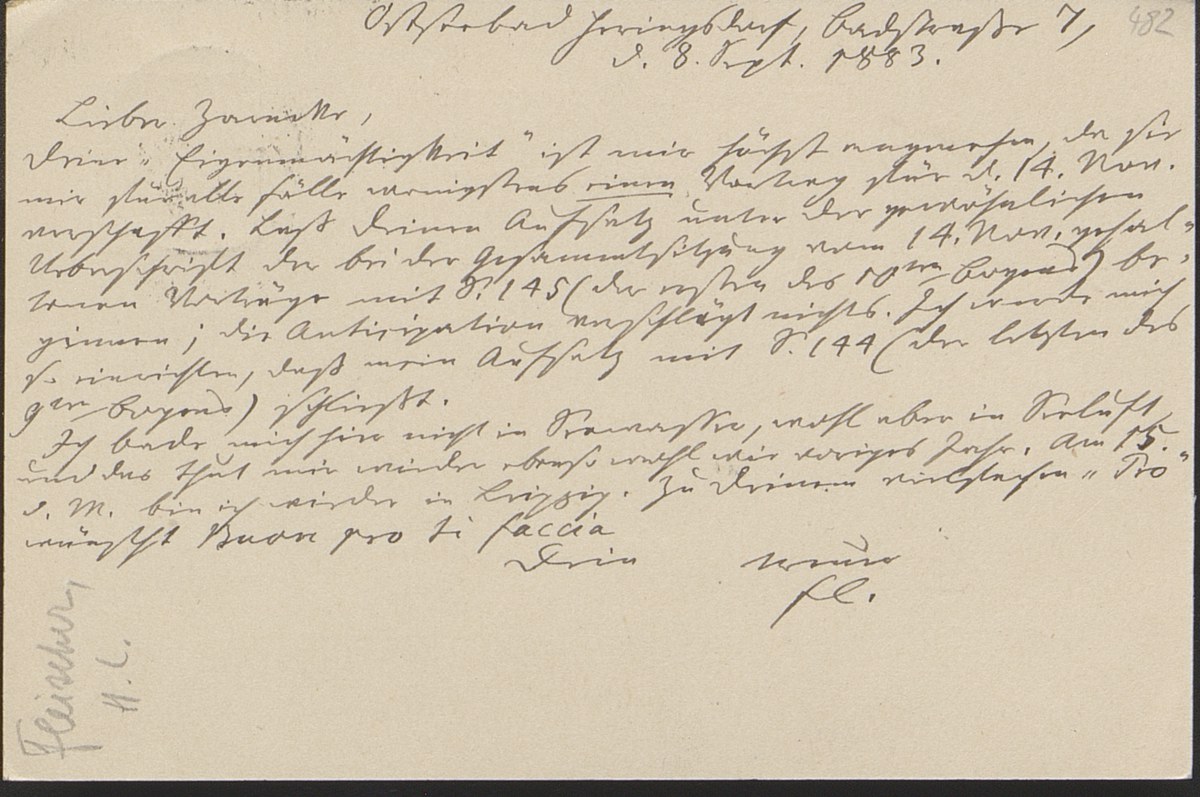 482
Ostseebad Heringsdorf, Badstraße 7,
d. 8. Sept. 1883.
Lieber Zarncke,
Deine „Eigenmächtigkeit“ ist mir höchst angenehm, da sie
mir für alle Fälle wenigstens einen Vortrag für d. 14. Nov.
verschafft. Laß deinen Aufsatz unter der gewöhnlichen
Ueberschrift der bei der Gesammtsitzung vom 14. Nov. gehal-
tenen Vorträge mit S. 145 (der ersten des 10ten Bogens) be-
ginnen; die Anticipation verschlägt nichts. Ich werde mich
so einrichten, daß mein Aufsatz mit S. 144 (der letzten des
9ten Bogens) schließt.
Ich bade mich hier nicht in Seewasser, wohl aber in Seeluft,
und das thut mir wieder ebenso wohl wie voriges Jahr. Am 15.
d. M. bin ich wieder in Leipzig. Zu deinem vielfachen „Pro“
wünscht Buon pro ti faccia
Dein treuer
Fl.
Fleischer,
H. L.